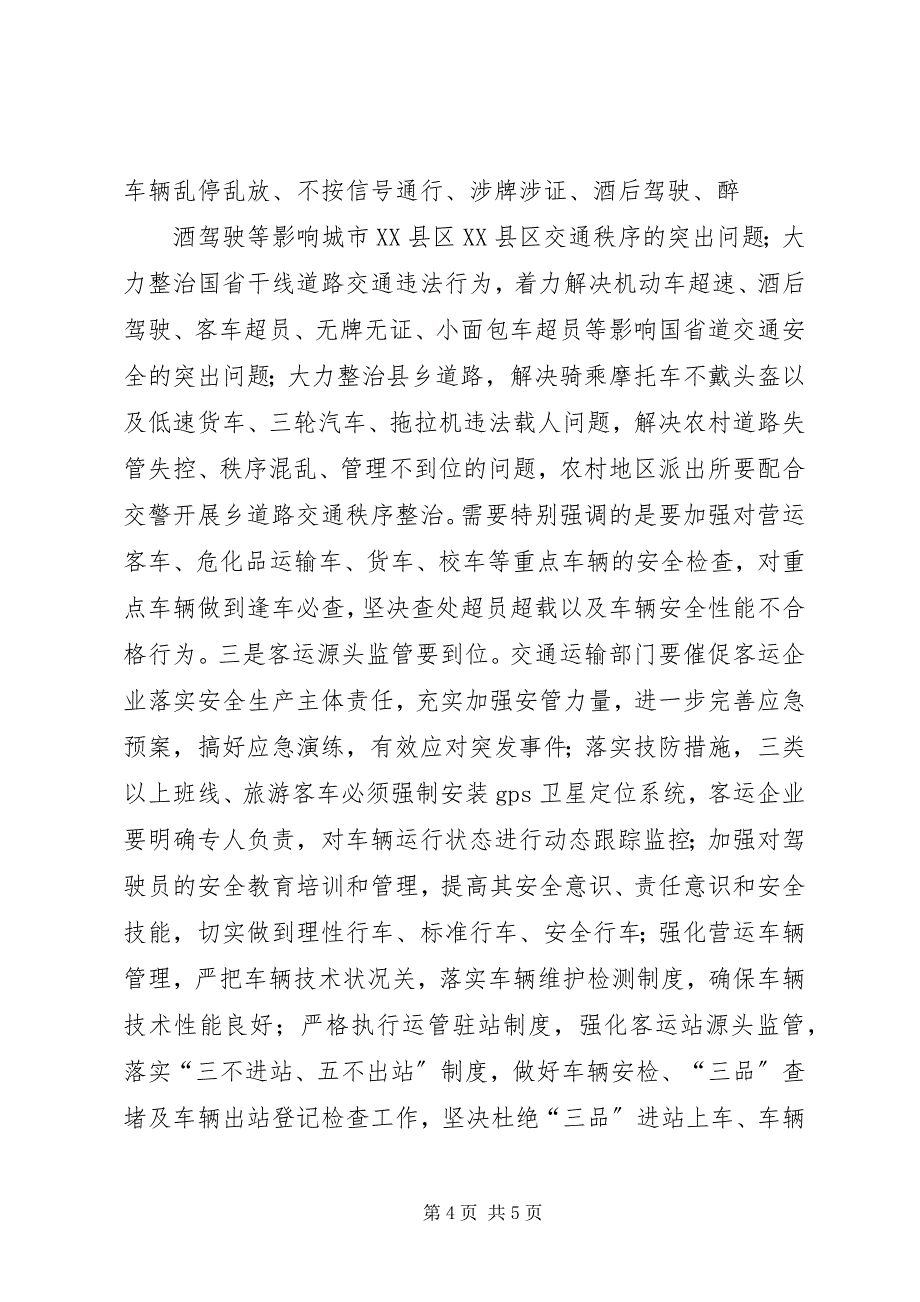 车辆乱停乱放、不按信号通行、涉牌涉证、酒后驾驶、醉
酒驾驶等影响城市 XX 县区 XX 县区交通秩序的突出问题；大
力整治国省干线道路交通违法行为，着力解决机动车超速、酒后
驾驶、客车超员、无牌无证、小面包车超员等影响国省道交通安
全的突出问题；大力整治县乡道路，解决骑乘摩托车不戴头盔以
及低速货车、三轮汽车、拖拉机违法载人问题，解决农村道路失
管失控、秩序混乱、管理不到位的问题，农村地区派出所要配合
交警开展乡道路交通秩序整治。需要特别强调的是要加强对营运
客车、危化品运输车、货车、校车等重点车辆的安全检查，对重
点车辆做到逢车必查，坚决查处超员超载以及车辆安全性能不合
格行为。三是客运源头监管要到位。交通运输部门要催促客运企
业落实安全生产主体责任，充实加强安管力量，进一步完善应急
预案，搞好应急演练，有效应对突发事件；落实技防措施，三类
以上班线、旅游客车必须强制安装 gps 卫星定位系统，客运企业
要明确专人负责，对车辆运行状态进行动态跟踪监控；加强对驾
驶员的安全教育培训和管理，提高其安全意识、责任意识和安全
技能，切实做到理性行车、标准行车、安全行车；强化营运车辆
管理，严把车辆技术状况关，落实车辆维护检测制度，确保车辆
技术性能良好；严格执行运管驻站制度，强化客运站源头监管，
落实“三不进站、五不出站〞制度，做好车辆安检、“三品〞查
堵及车辆出站登记检查工作，坚决杜绝“三品〞进站上车、车辆
第 4 页 共 5 页